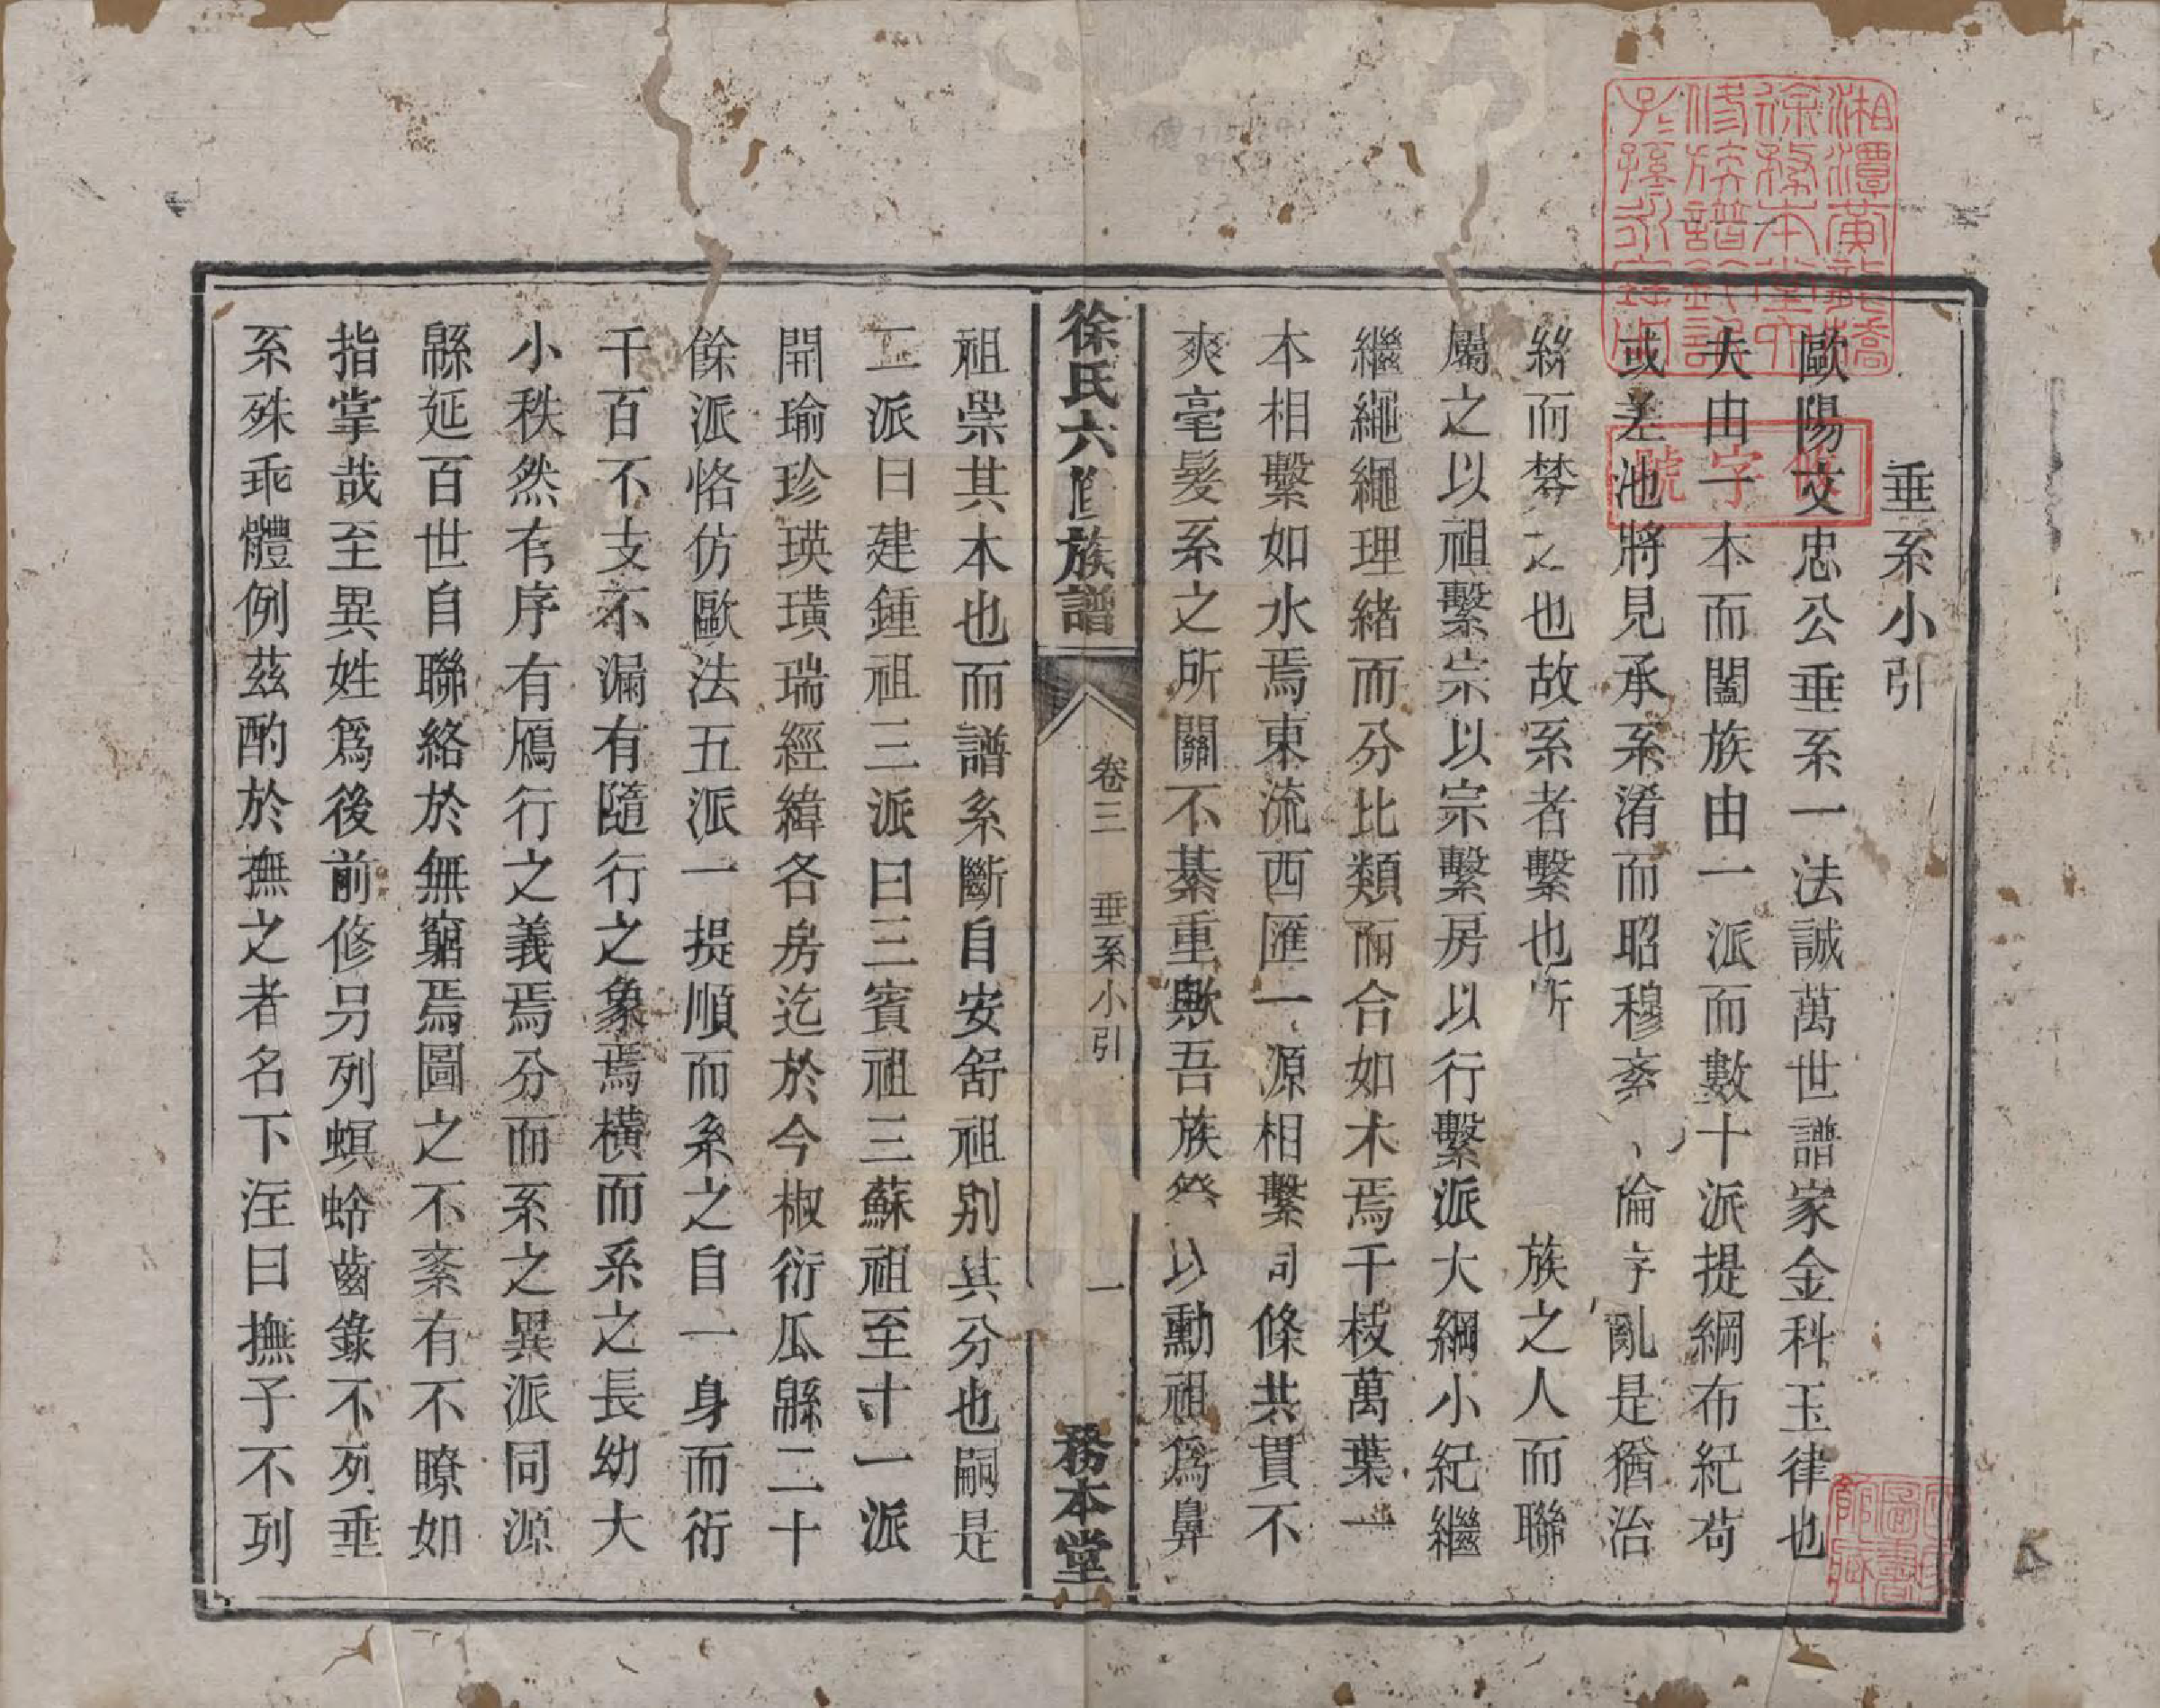 垂系小引
歐陽文忠公垂系一法誠萬世譜家金科玉律也
夫由一本而闔族由一派而數十派提綱布紀苟
或差池將見承系淆而昭穆紊倫序亂是猶治
絲而棼之也故系者繫也所族之人而聯
屬之以祖繫宗以宗繫房以行繫派大綱小紀繼
繼繩繩理緒而分比類而合如木焉千枝萬葉一
本相繫如水焉東流西匯一源相繫同條共貫不
爽毫髮系之所關不綦重歟吾族祭以勳祖爲鼻
徐氏六修族譜
卷三 垂系小引
一
務本堂
祖崇其本也而譜系斷自安舒祖别其分也嗣是
二派曰建鍾祖三派曰三賓祖三蘇祖至十一派
開瑜珍瑛璜瑞經緯各房迄於今椒衍瓜緜二十
餘派恪仿歐法五派一提順而系之自一身而衍
千百不支不漏有隨行之象焉橫而系之長幼大
小秩然有序有鴈行之義焉分而系之異派同源
緜延百世自聯絡於無窮焉圖之不紊有不瞭如
指掌哉至異姓爲後前修另列螟蛉齒錄不列垂
系殊乖體例茲酌於撫之者名下注曰撫子不列
湘潭黃龍橋
徐務本堂六
修族譜鈐記
子孫永寶用
字號
圖書